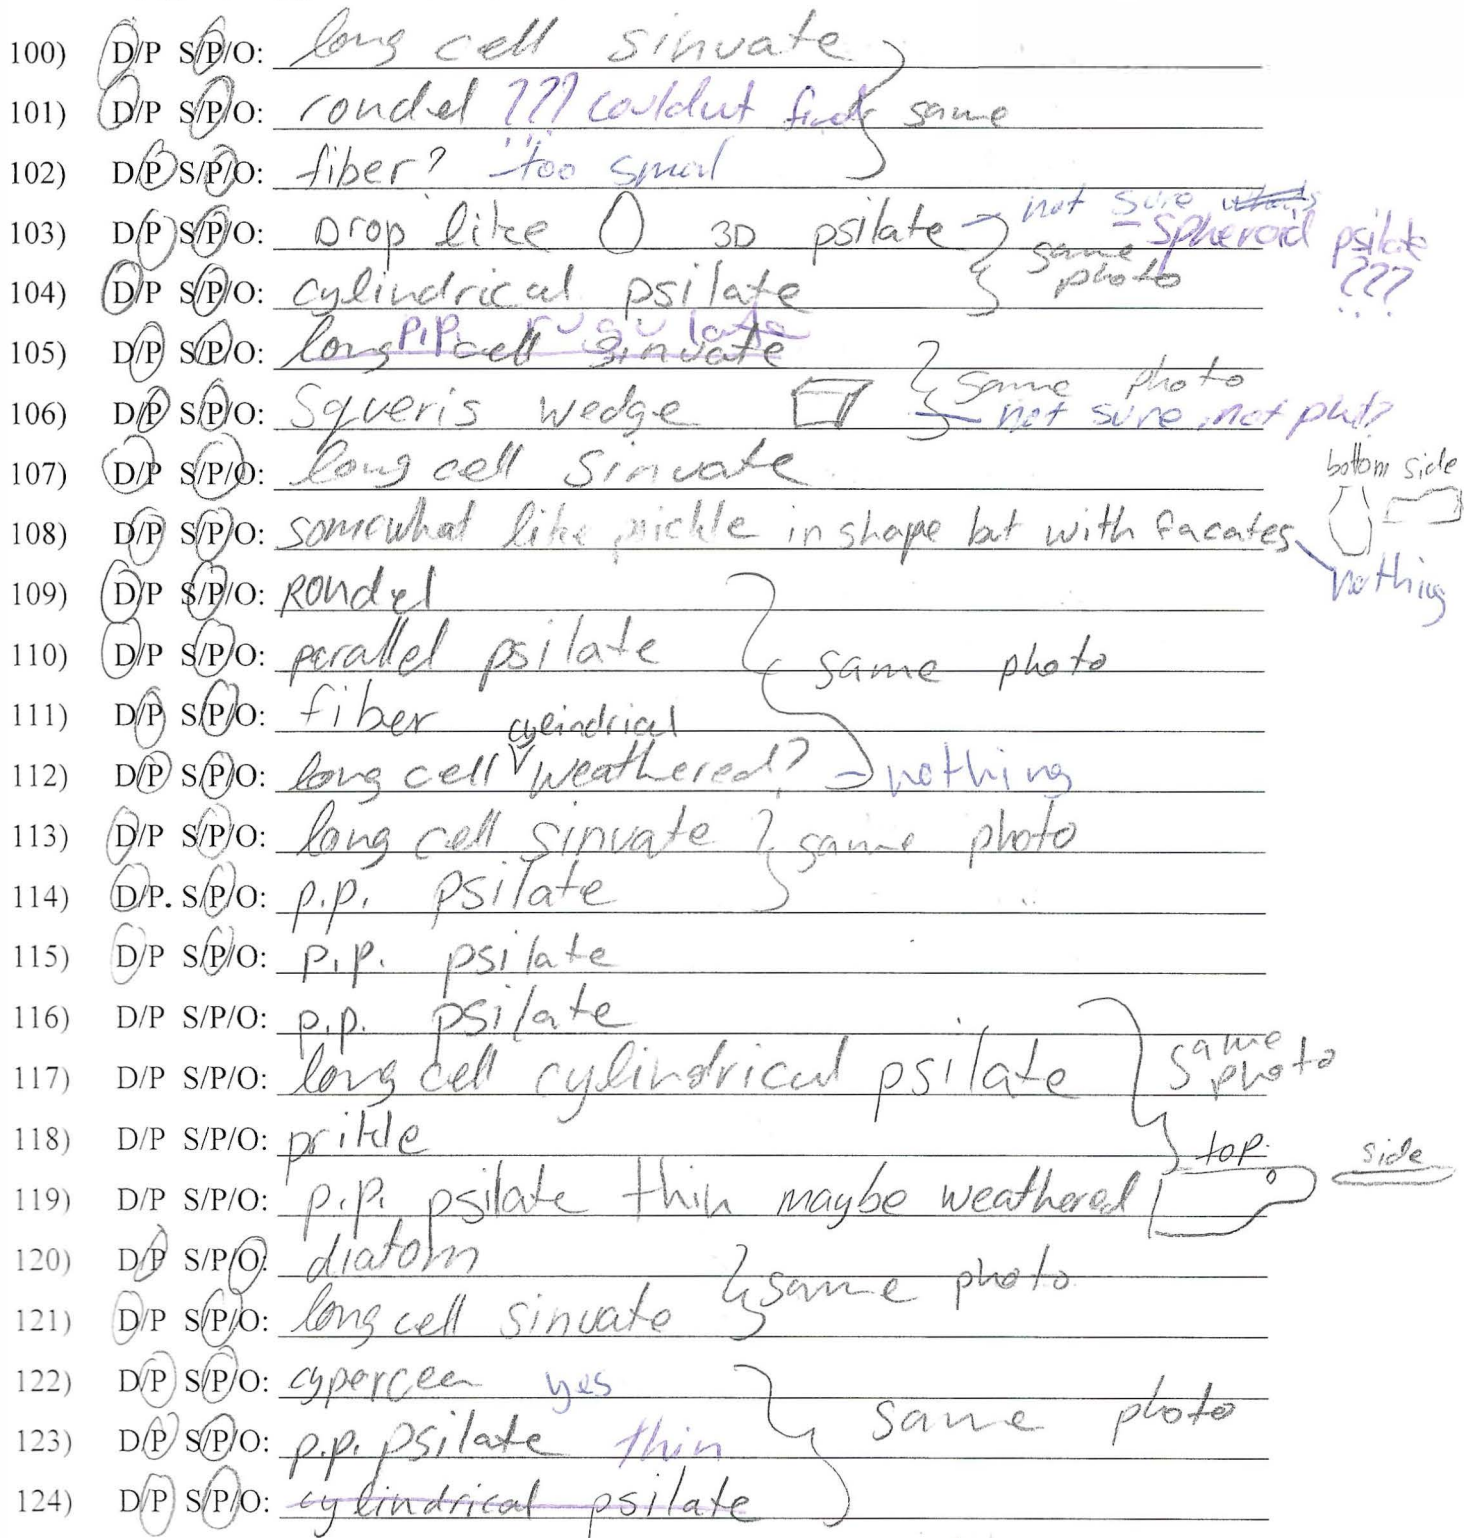 100) D/P S/P/O: long cell sinuate
101) D/P S/P/O: rondel ??? couldnt find same
102) D/P S/P/O: fiber? too smal
103) D/P S/P/O: Drop like 3D psilate - not sure - Spheroid psilate ???
same photo
104) D/P S/P/O: cylindrical psilate
p.p. rugulate
105) D/P S/P/O: long cell sinuate
same photo
106) D/P S/P/O: Squeris wedge - not sure, not phd?
107) D/P S/P/O: long cell sinuate
bottom side
108) D/P S/P/O: somewhat like prickle in shape but with facates
nothing
109) D/P S/P/O: Rondel
110) D/P S/P/O: parallel psilate same photo
111) D/P S/P/O: fiber
cyeindrical
112) D/P S/P/O: long cell weathered? - nothing
113) D/P S/P/O: long cell sinuate same photo
114) D/P. S/P/O: p.p. psilate
115) D/P S/P/O: p.p. psilate
116) D/P S/P/O: p.p. psilate
same photo
117) D/P S/P/O: long cell cylindrical psilate
118) D/P S/P/O: prikle
top. side
119) D/P S/P/O: p.p. psilate thin maybe weathered
120) D/P S/P/O: diatom
same photo
121) D/P S/P/O: long cell sinuate
122) D/P S/P/O: cypercea yes
same photo
123) D/P S/P/O: p.p. psilate thin
124) D/P S/P/O: cylindrical psilate